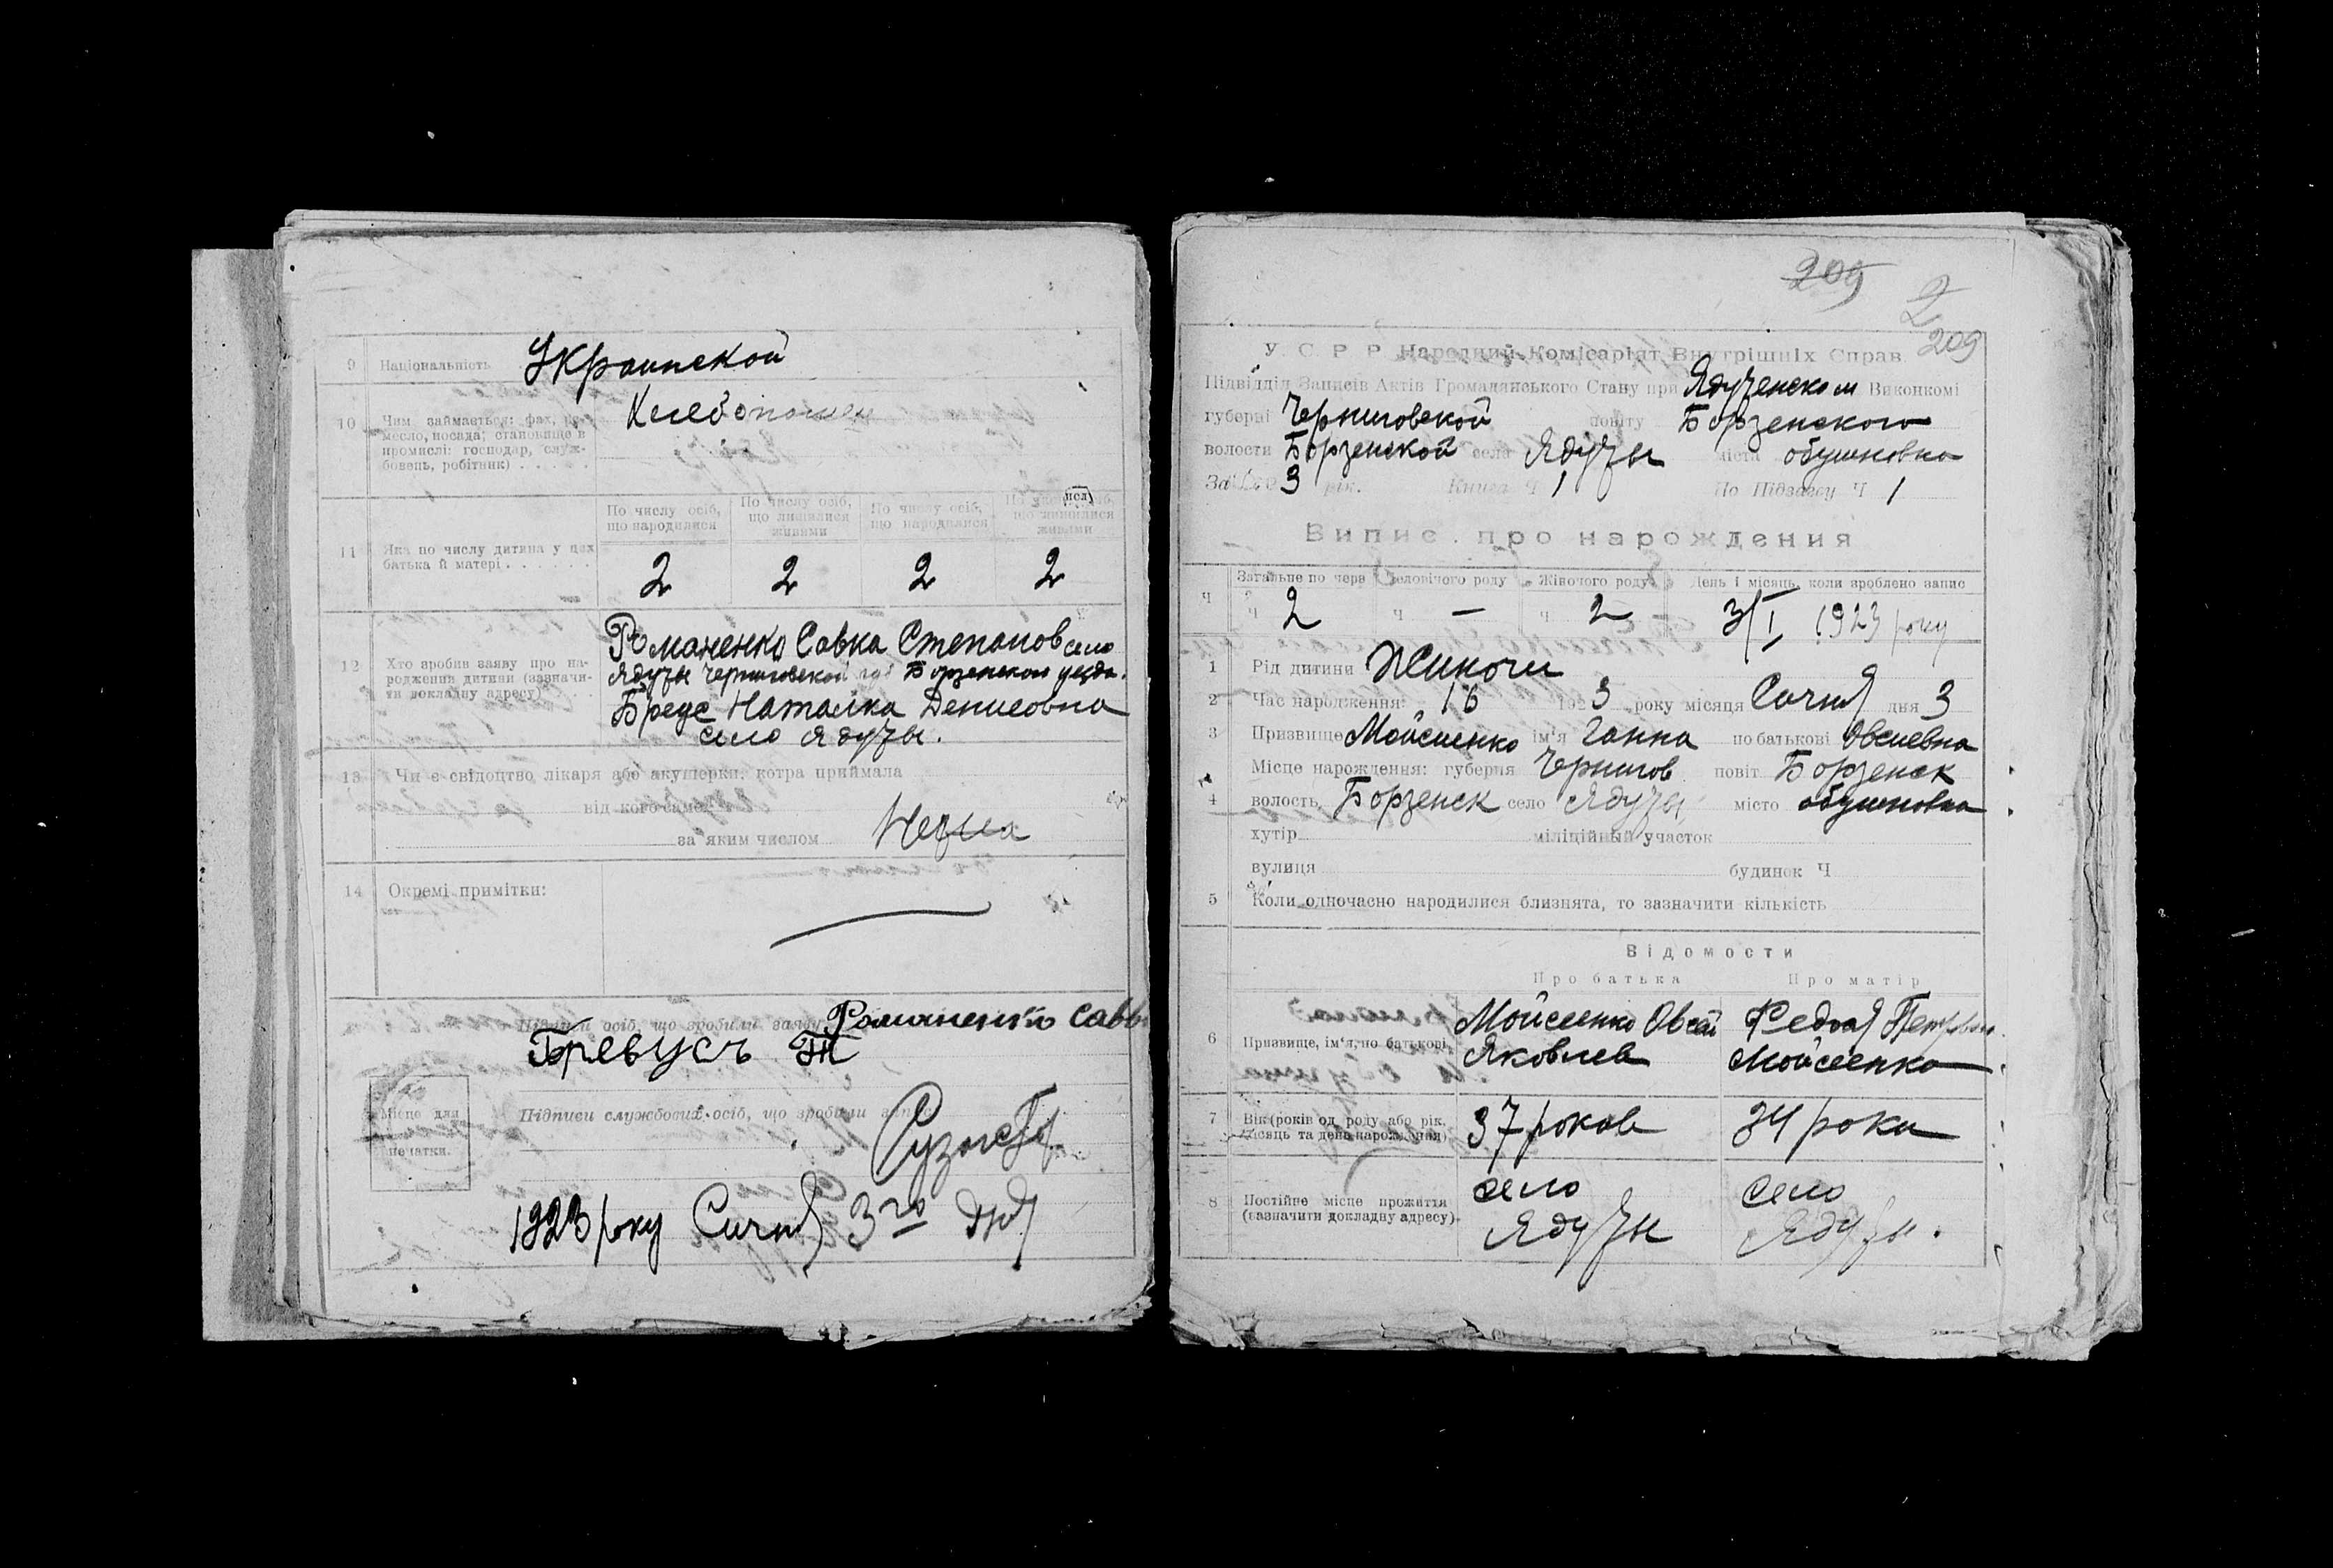 9 Національність Украинской
10 Чим займається: фах, ре-
месло, посада; становище в
промислі: господар, служ-
бовець, робітник) . . . . .
Хлебопашец
По числу осіб, що народилися
По числу осіб, що лишилися живими
По числу осіб, що народилися
По числу осіб, що лишилися живими
11 Яка по числу дитина у цих
батька й матері . . . . . .
2 2 2 2
12 Хто зробив заяву про на-
родження дитини (зазначи-
ти докладну адресу) . . .
Романенко Савка Степанов село
Ядуты Черниговской губ Борзенского уезда.
Бреус Наталка Денисовна
село Ядуты.
13 Чи є свідоцтво лікаря або акушерки, котра приймала
від кого саме
за яким числом Нема
14 Окремі примітки:
Підписи осіб, що зробили заяву Романенко Савв
Бревусъ
Місце для
печатки.
Підписи службових осіб, що зробили запис
1923 року Сичня 3го дня
209 2
209
У. С. Р. Р. Народний Комісаріят Внутрішніх Справ.
Підвідділ Записів Актів Громадянського Стану при Ядутенском Виконкомі
губерні Черниговской повіту Борзенского
волости Борзенской села Ядуты міста
За 192 3 рік. Книга Ч 1 По Підзагсу Ч 1
Випис про народження
Ч Загальне по черзі Чоловічого роду Жіночого роду День і місяць, коли зроблено запис
ч 2 ч — ч 2 3/I 1923 року
1 Рід дитини Жиночи
2 Час народження: 16 192 3 року місяця Сичня дня 3
3 Призвище Мойсиенко ім'я Ганна по батькові Овсиевна
Місце нарождення: губерня Чернигов повіт Борзенск
4 волость Борзенск село Ядуты місто
хутір міліційный участок
вулиця будинок Ч
5 Коли одночасно народилися близнята, то зазначити кількість
Відомости
Про батька Про матір
6 Призвище, ім'я, по батькові
Мойсеенко Овсей
Яковлев
Федося Петровна
Мойсеенко
7 Вік (років од роду або рік,
місяць та день народження)
37 роков 34 роки
8 Постійне місце прожиття
(зазначити докладну адресу).
село
Ядуты
село
Ядуты.